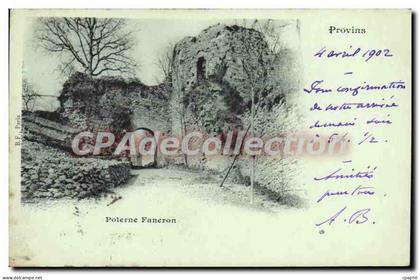 Provins
4 avril 1902
Pour confirmation
de notre arrivée
demain soir
à 5h 1/2
Amitiés
pour tous
A. B.
CPArama.com
Poterne Faneron
B.F., Paris